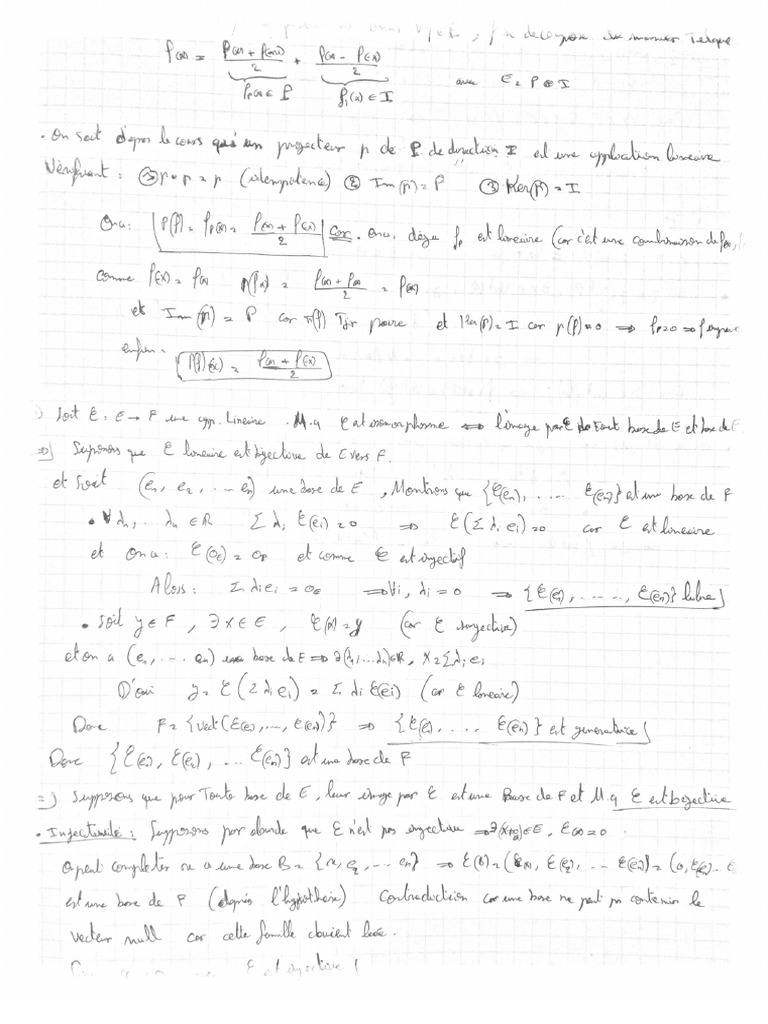 f se decompose de manière Telque
f(x) = f(x) + f(-x) / 2 + f(x) - f(-x) / 2 avec E = P ⊕ I
f_p(x) ∈ P f_i(x) ∈ I
• On sait d'apres le cours qu'un projecteur p de P de direction I est une application lineaire
Vérifiant : ① p∘p = p (idempotence) ② Im(p) = P ③ Ker(p) = I
On a : p(f) = f_p(x) = f(x) + f(-x) / 2 Car. On a, déja f_p est lineaire (car c'est une combinaison de f(x),
comme f(-x) = f(x) p(f(x)) = f(x) + f(x) / 2 = f(x)
et Im(p) = P car p(f) Tjr paire et Ker(p) = I car p(f) = 0 ⇒ f_p = 0 ⇒ f
enfin : p(f)(x) = f(x) + f(-x) / 2
) Soit φ : E → F une app. Lineaire. M.q φ est isomorphisme ⇔ l'image par φ de Tout base de E est base de F
⇒) Suposons que φ lineaire est bijective de E vers F.
et soit (e1, e2, ... en) une base de E, Montrons que {φ(e1), .... φ(en)} est une base de F
• ∀ λ1, .. λn ∈ R Σ λi φ(ei) = 0 ⇒ φ(Σ λi ei) = 0 car φ est lineaire
et on a : φ(0E) = 0F et comme φ est injectif
Alors : Σ λi ei = 0E ⇒ ∀i, λi = 0 ⇒ {φ(e1), ....., φ(en)} libre
• Soit y ∈ F, ∃ x ∈ E, φ(x) = y (car φ surjective)
et on a (e1, .... en) une base de E ⇒ ∃(λ1, ... λn) ∈ R, x = Σ λi ei
D'où y = φ(Σ λi ei) = Σ λi φ(ei) (car φ lineaire)
Donc F = {vect(φ(e1), ..., φ(en))} ⇒ {φ(e1), .... φ(en)} est generatrice
Donc {φ(e1), φ(e2), ... φ(en)} est une base de F
⇐) Supposons que pour Toute base de E, leur image par φ est une Base de F et M.q φ est bijective
• Injectivité : Supposons par absurde que φ n'est pas injective ⇒ ∃(x≠0) ∈ E, φ(x) = 0.
O peut completer x a une base B = {x, e2, ... en} ⇒ φ(B) = (φ(x), φ(e2), ... φ(en)) = (0, φ(e2) ..
est une base de F (d'après l'hypothese) Contradiction car une base ne peut pas contenir le
vecteur null car cette famille devient liée.
φ est injective